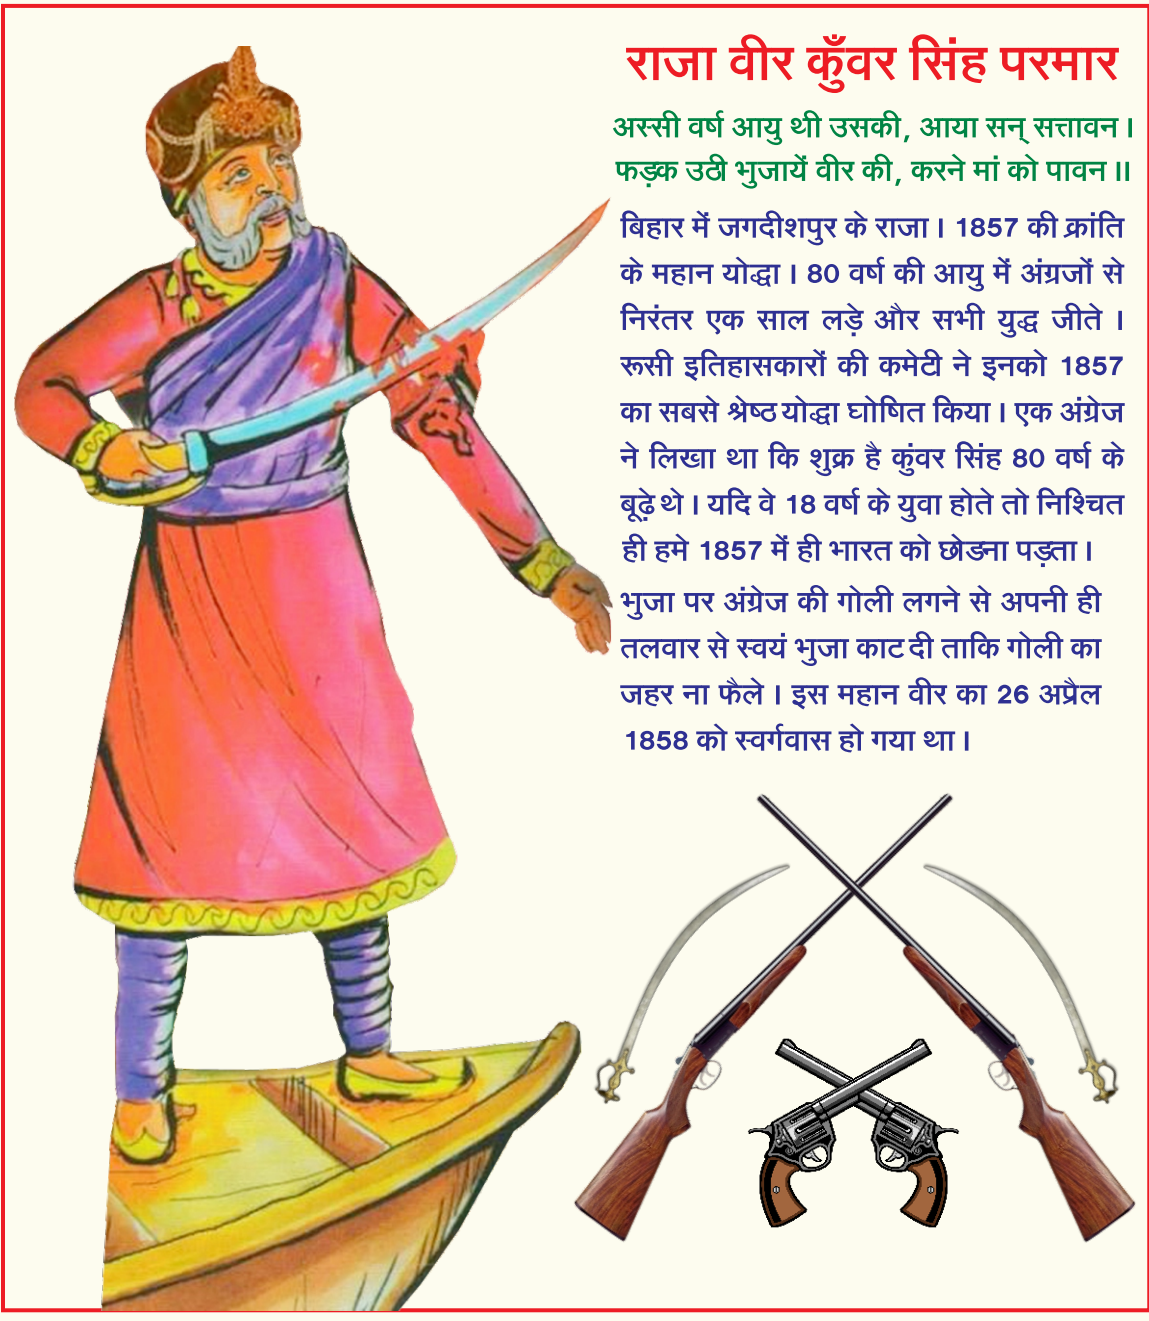 राजा वीर कुँवर सिंह परमार
अस्सी वर्ष आयु थी उसकी, आया सन् सत्तावन ।
फड़क उठी भुजायें वीर की, करने मां को पावन ॥
बिहार में जगदीशपुर के राजा । 1857 की क्रांति
के महान योद्धा । 80 वर्ष की आयु में अंग्रजों से
निरंतर एक साल लड़े और सभी युद्ध जीते ।
रूसी इतिहासकारों की कमेटी ने इनको 1857
का सबसे श्रेष्ठ योद्धा घोषित किया । एक अंग्रेज
ने लिखा था कि शुक्र है कुंवर सिंह 80 वर्ष के
बूढ़े थे । यदि वे 18 वर्ष के युवा होते तो निश्चित
ही हमे 1857 में ही भारत को छोडना पड़ता ।
भुजा पर अंग्रेज की गोली लगने से अपनी ही
तलवार से स्वयं भुजा काट दी ताकि गोली का
जहर ना फैले । इस महान वीर का 26 अप्रैल
1858 को स्वर्गवास हो गया था ।